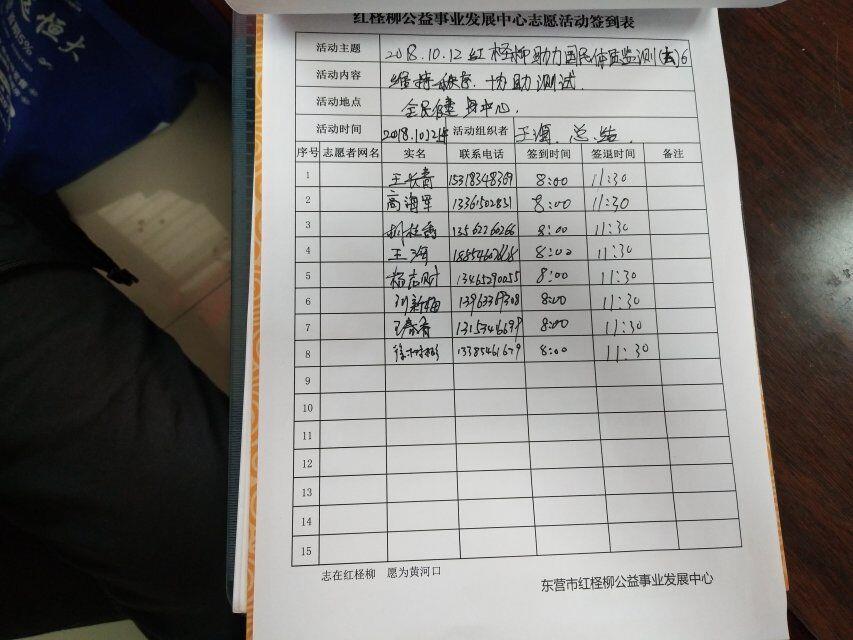 恒大
红柽柳公益事业发展中心志愿活动签到表
活动主题 2018.10.12红柽柳助力国民体质监测(去)6
活动内容 维持秩序 协助测试.
活动地点 全民健身中心.
活动时间 2018.10.12 活动组织者 王海 总结
序号 志愿者网名 实名 联系电话 签到时间 签退时间 备注
1 王长青 15318348369 8:00 11:30
2 高海军 13361502831 8:00 11:30
3 13562260266 8:00 11:30
4 王海 8:00 11:30
5 杨志财 13465290055 8:00 11:30
6 刘新梅 8:00 11:30
7 王春香 8:00 11:30
8 13385461679 8:00 11:30
9
10
11
12
13
14
15
志在红柽柳 愿为黄河口
东营市红柽柳公益事业发展中心